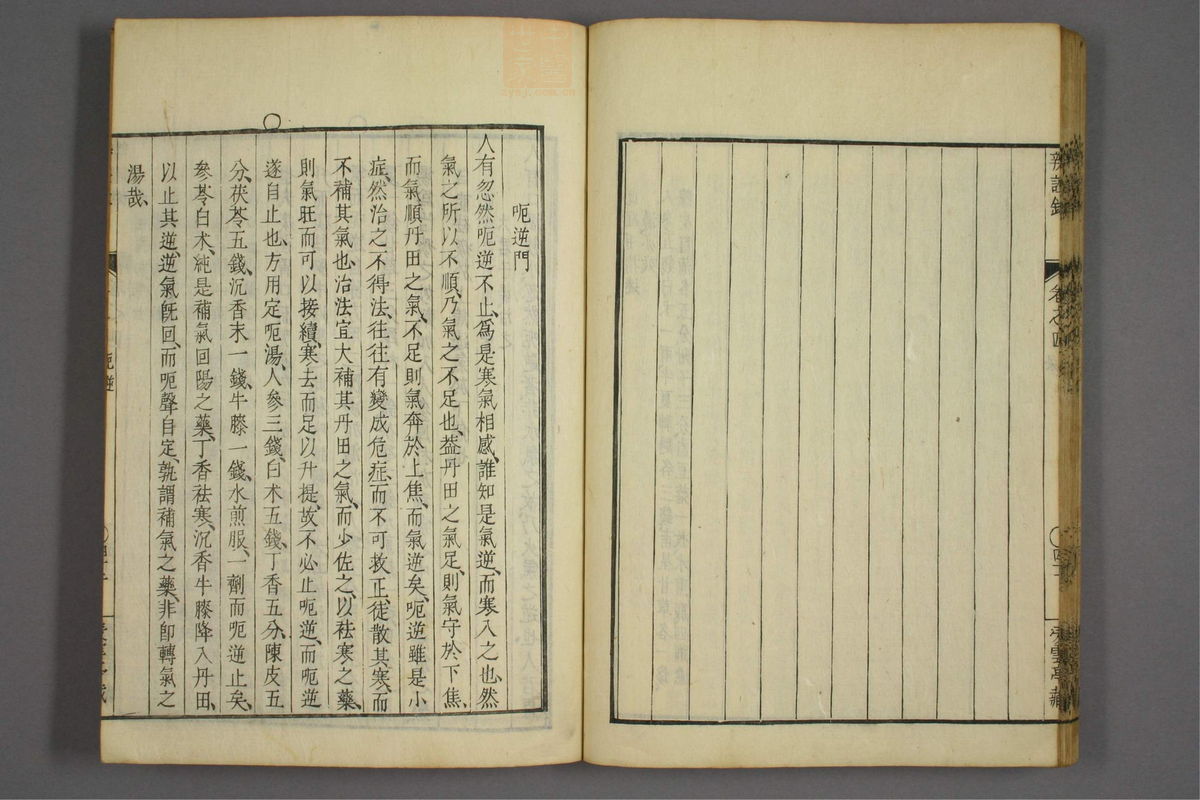 辨證錄
卷之四
呃逆門
人有忽然呃逆不止、爲是寒氣相感、誰知是氣逆、而寒入之也、然
氣之所以不順、乃氣之不足也、蓋丹田之氣足、則氣守於下焦、
而氣順、丹田之氣、不足則氣奔於上焦、而氣逆矣、呃逆雖是小
症、然治之不得法、往往有變成危症、而不可救正、徒散其寒、而
不補其氣也、治法宜大補其丹田之氣、而少佐之、以祛寒之藥、
則氣旺而可以接續、寒去而足以升提、故不必止呃逆、而呃逆
遂自止也、方用定呃湯、人參三錢、白术五錢、丁香五分、陳皮五
分、茯苓五錢、沉香末一錢、牛膝一錢、水煎服、一劑而呃逆止矣、
參苓白术、純是補氣回陽之藥、丁香祛寒、沉香牛膝降入丹田、
以止其逆、逆氣旣回、而呃聲自定、孰謂補氣之藥、非卽轉氣之
湯哉、
呃逆
zysj.com.cn